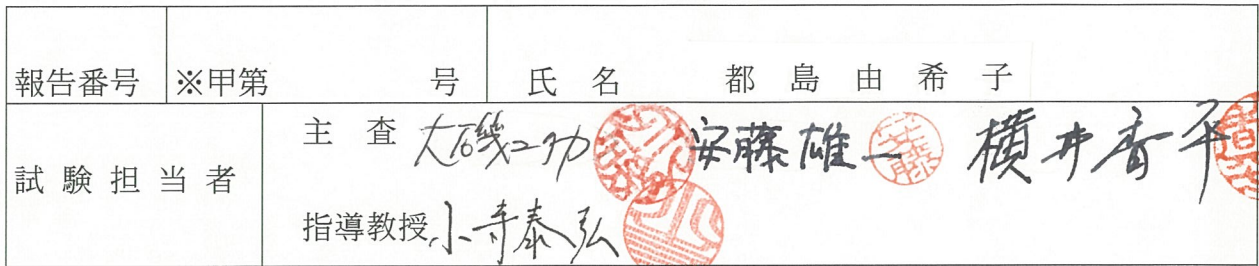 報告番号 ※甲第 号 氏名 都島由希子
試験担当者 主査 大磯ユタカ 安藤雄一 横井香平
指導教授 小寺泰弘